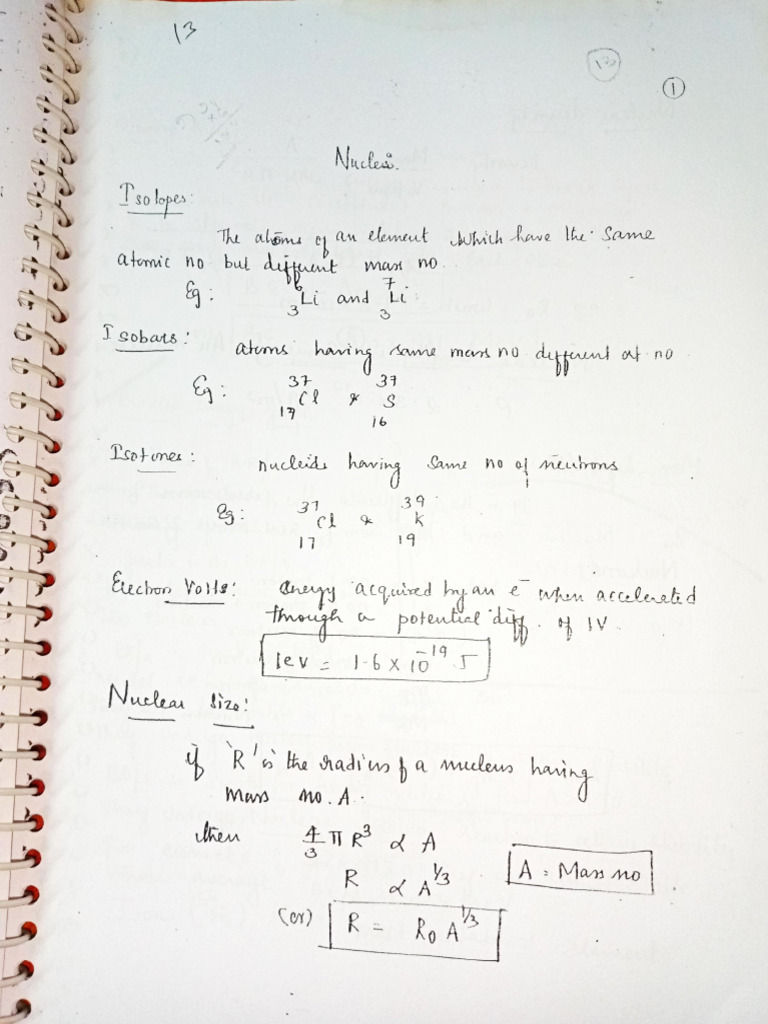 13
13
1
Nuclei.
Isotopes:
The atoms of an element which have the same
atomic no but different mass no.
Eg: ⁶₃Li and ⁷₃Li
Isobars:
atoms having same mass no different at no
Eg: ³⁷₁₇Cl & ³⁷₁₆S
Isotones:
nucleids having same no of neutrons
Eg: ³⁷₁₇Cl & ³⁹₁₉K
Electron Volts: energy acquired by an e⁻ when accelerated
through a potential diff. of 1V.
1ev = 1.6 × 10⁻¹⁹ J
Nuclear size:
if 'R' is the radius of a nucleus having
mass no. A.
then 4/3 π R³ ∝ A
R ∝ A^1/3
A = Mass no
(or) R = R₀ A^1/3